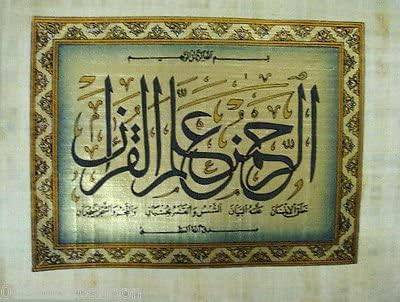 بسم الله الرحمن الرحيم
الرحمن علم القرآن
خلق الإنسان علمه البيان الشمس والقمر بحسبان والنجم والشجر يسجدان
صدق الله العظيم